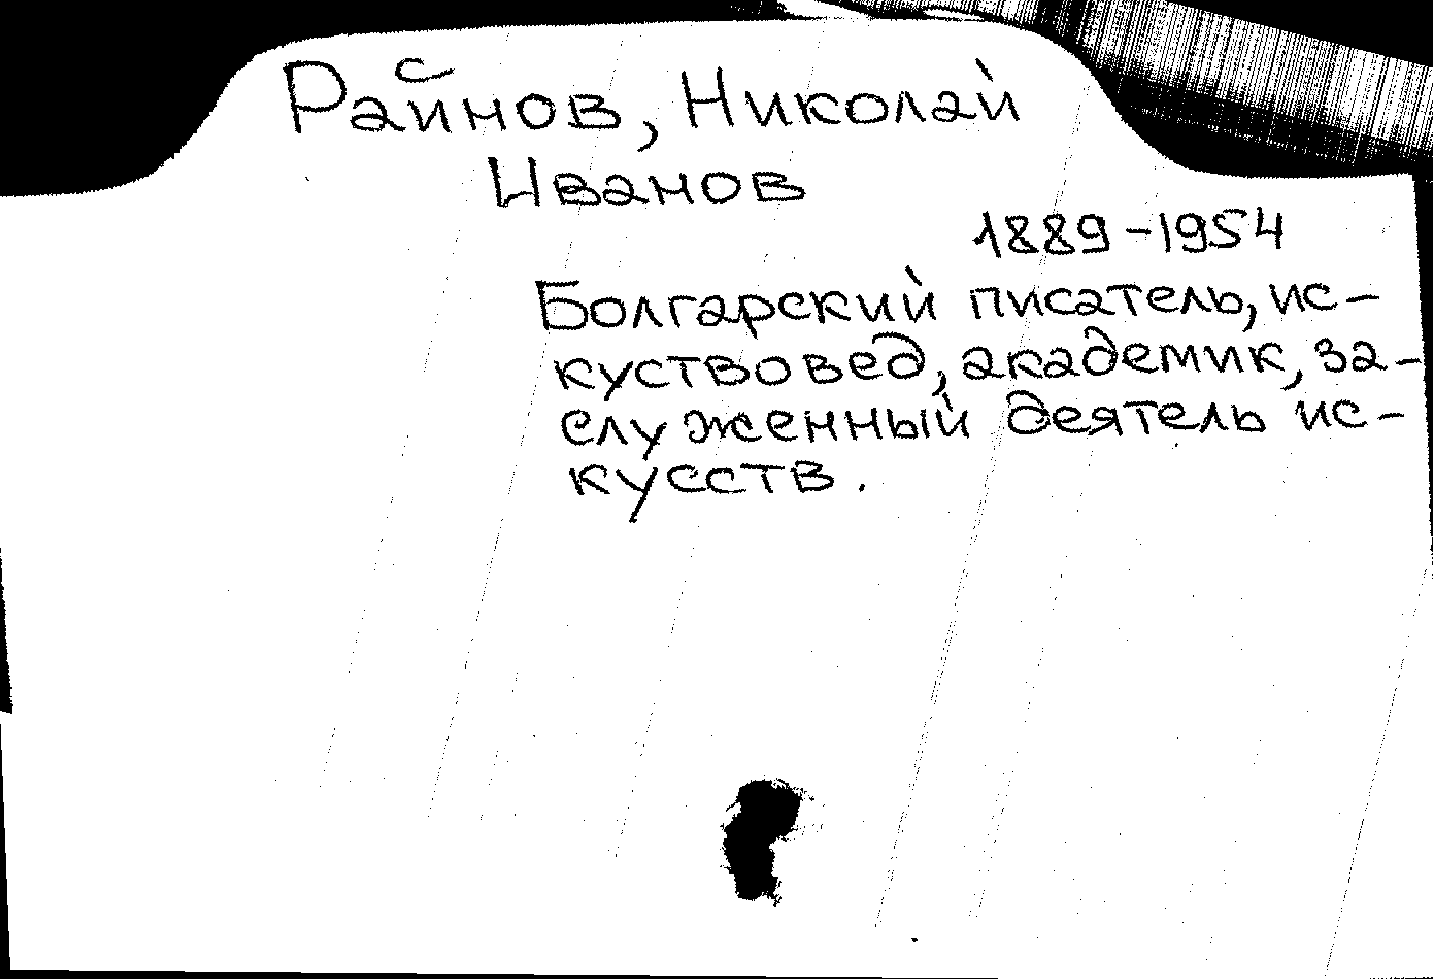 Райнов, Николай
Иванов
1889-1954
Болгарский писатель, ис-
куствовед, академик, за-
служенный деятель ис-
кусств.